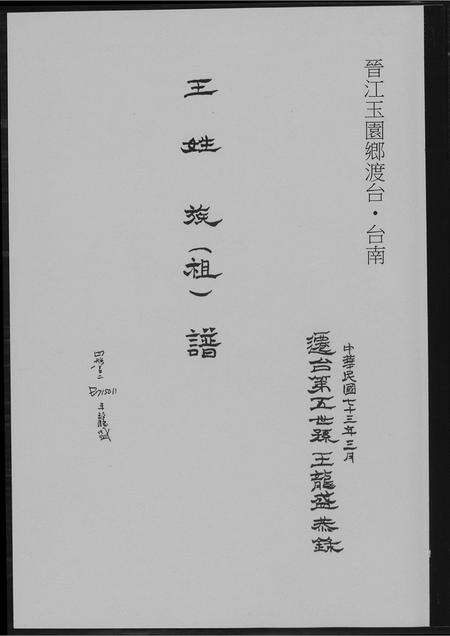 晉江玉園鄉渡台・台南
中華民國七十三年三月
遷台第五世孫王龍盛恭錄
王姓族(祖)譜
王龍盛